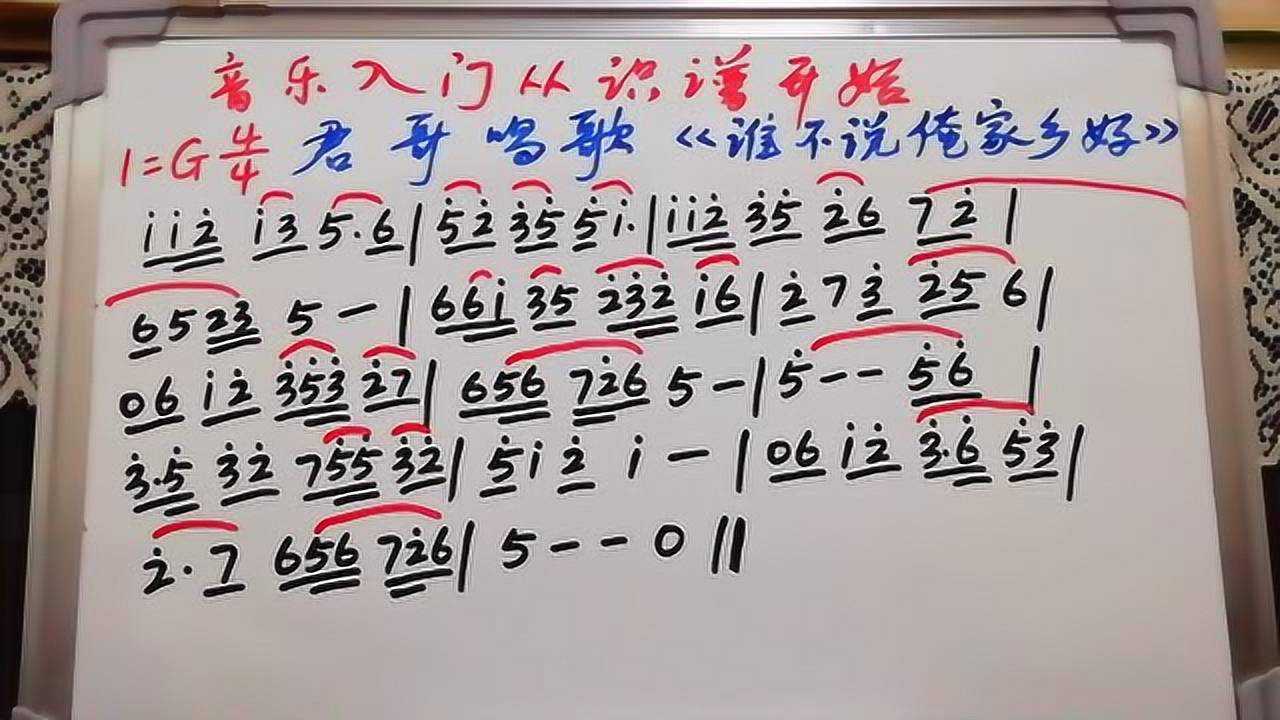 音乐入门从识谱开始
1=G 4/4 君哥唱歌《谁不说俺家乡好》
i̇ i̇ 2̇ i̇3 5·6 | 5̇2̇ 3̇5̇ 5̇i̇· | i̇i̇2̇ 3̇5̇ 2̇6 72̇ |
6523 5 — | 66i̇ 3̇5 2̇3̇2̇ i̇6 | 2̇ 7 3̇ 2̇5 6 |
06 i̇2̇ 3̇5̇3̇ 2̇7 | 656 72̇6 5 — | 5̇ — — 5̇6̇ |
3̇·5̇ 3̇2̇ 75̇5̇ 3̇2̇ | 5̇ i̇ 2̇ i̇ — | 06 i̇2̇ 3̇·6̇ 5̇3̇ |
2̇·7 656 72̇6 | 5 — — 0 ‖